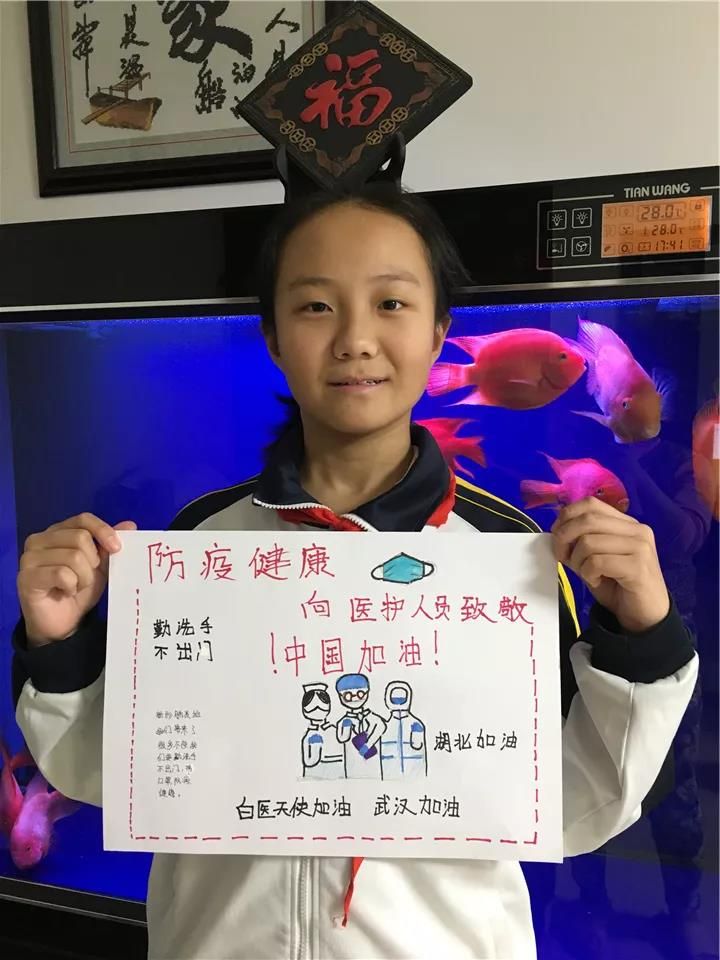 家
船
福
TIAN WANG
28.0℃
28.0℃
17:41
防疫健康
向医护人员致敬
勤洗手
不出门
!中国加油!
们要勤洗手
不出门,戴
健康。
湖北加油
白医天使加油 武汉加油